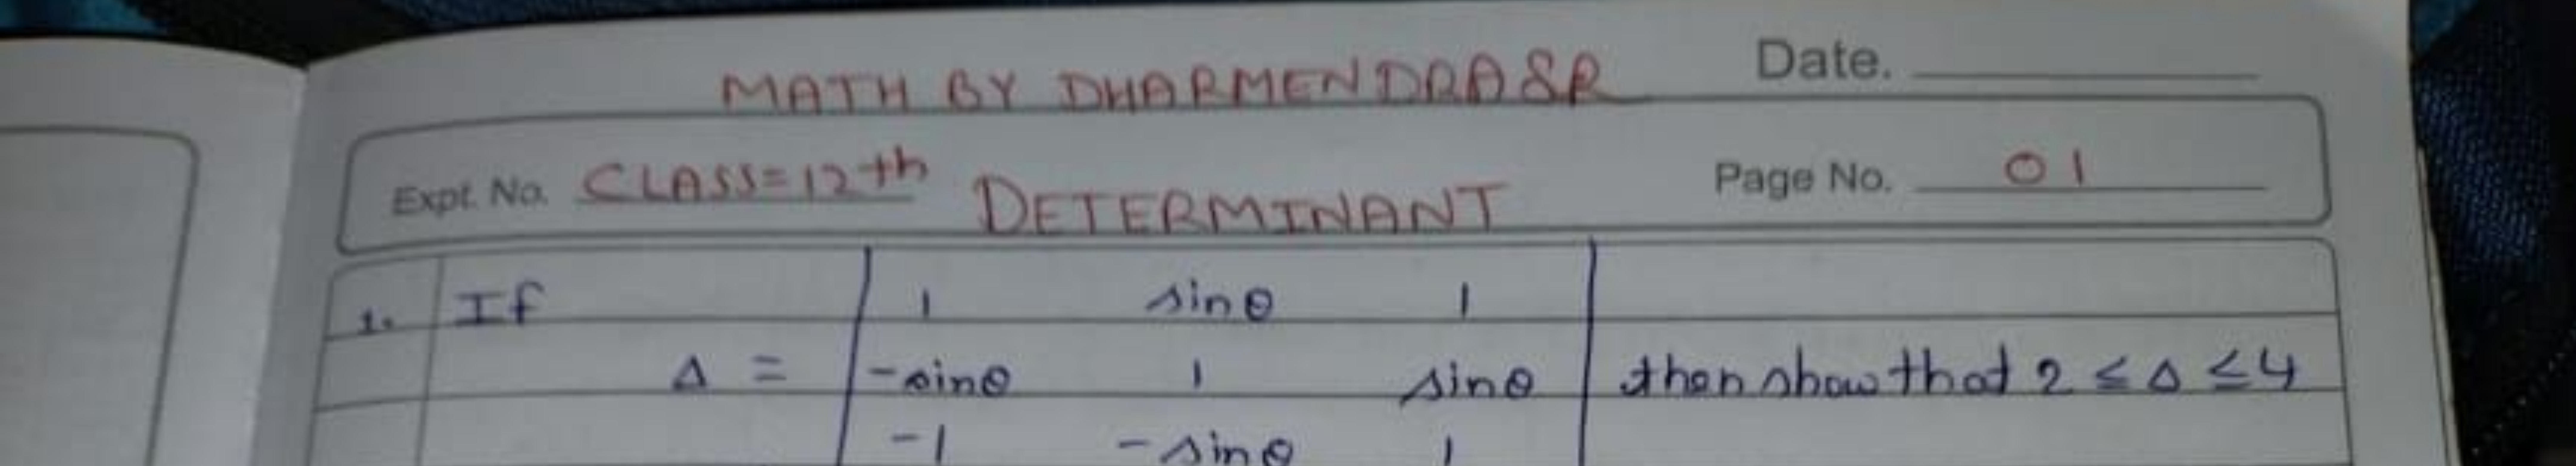 MATH BY DHARMENDRA SR
Date.
Expt. No. CLASS=12th
DETERMINANT
Page No. 01
1. If | 1 sinθ 1 |
Δ = | -sinθ 1 sinθ | then show that 2 ≤ Δ ≤ 4
| -1 -sinθ 1 |